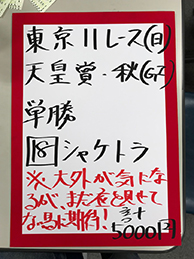 東京11レース(日)
天皇賞・秋(GI)
単勝
18 シャケトラ
※大外が気にな
るが、また夜を見せて
な馬に期待!
計
5000円